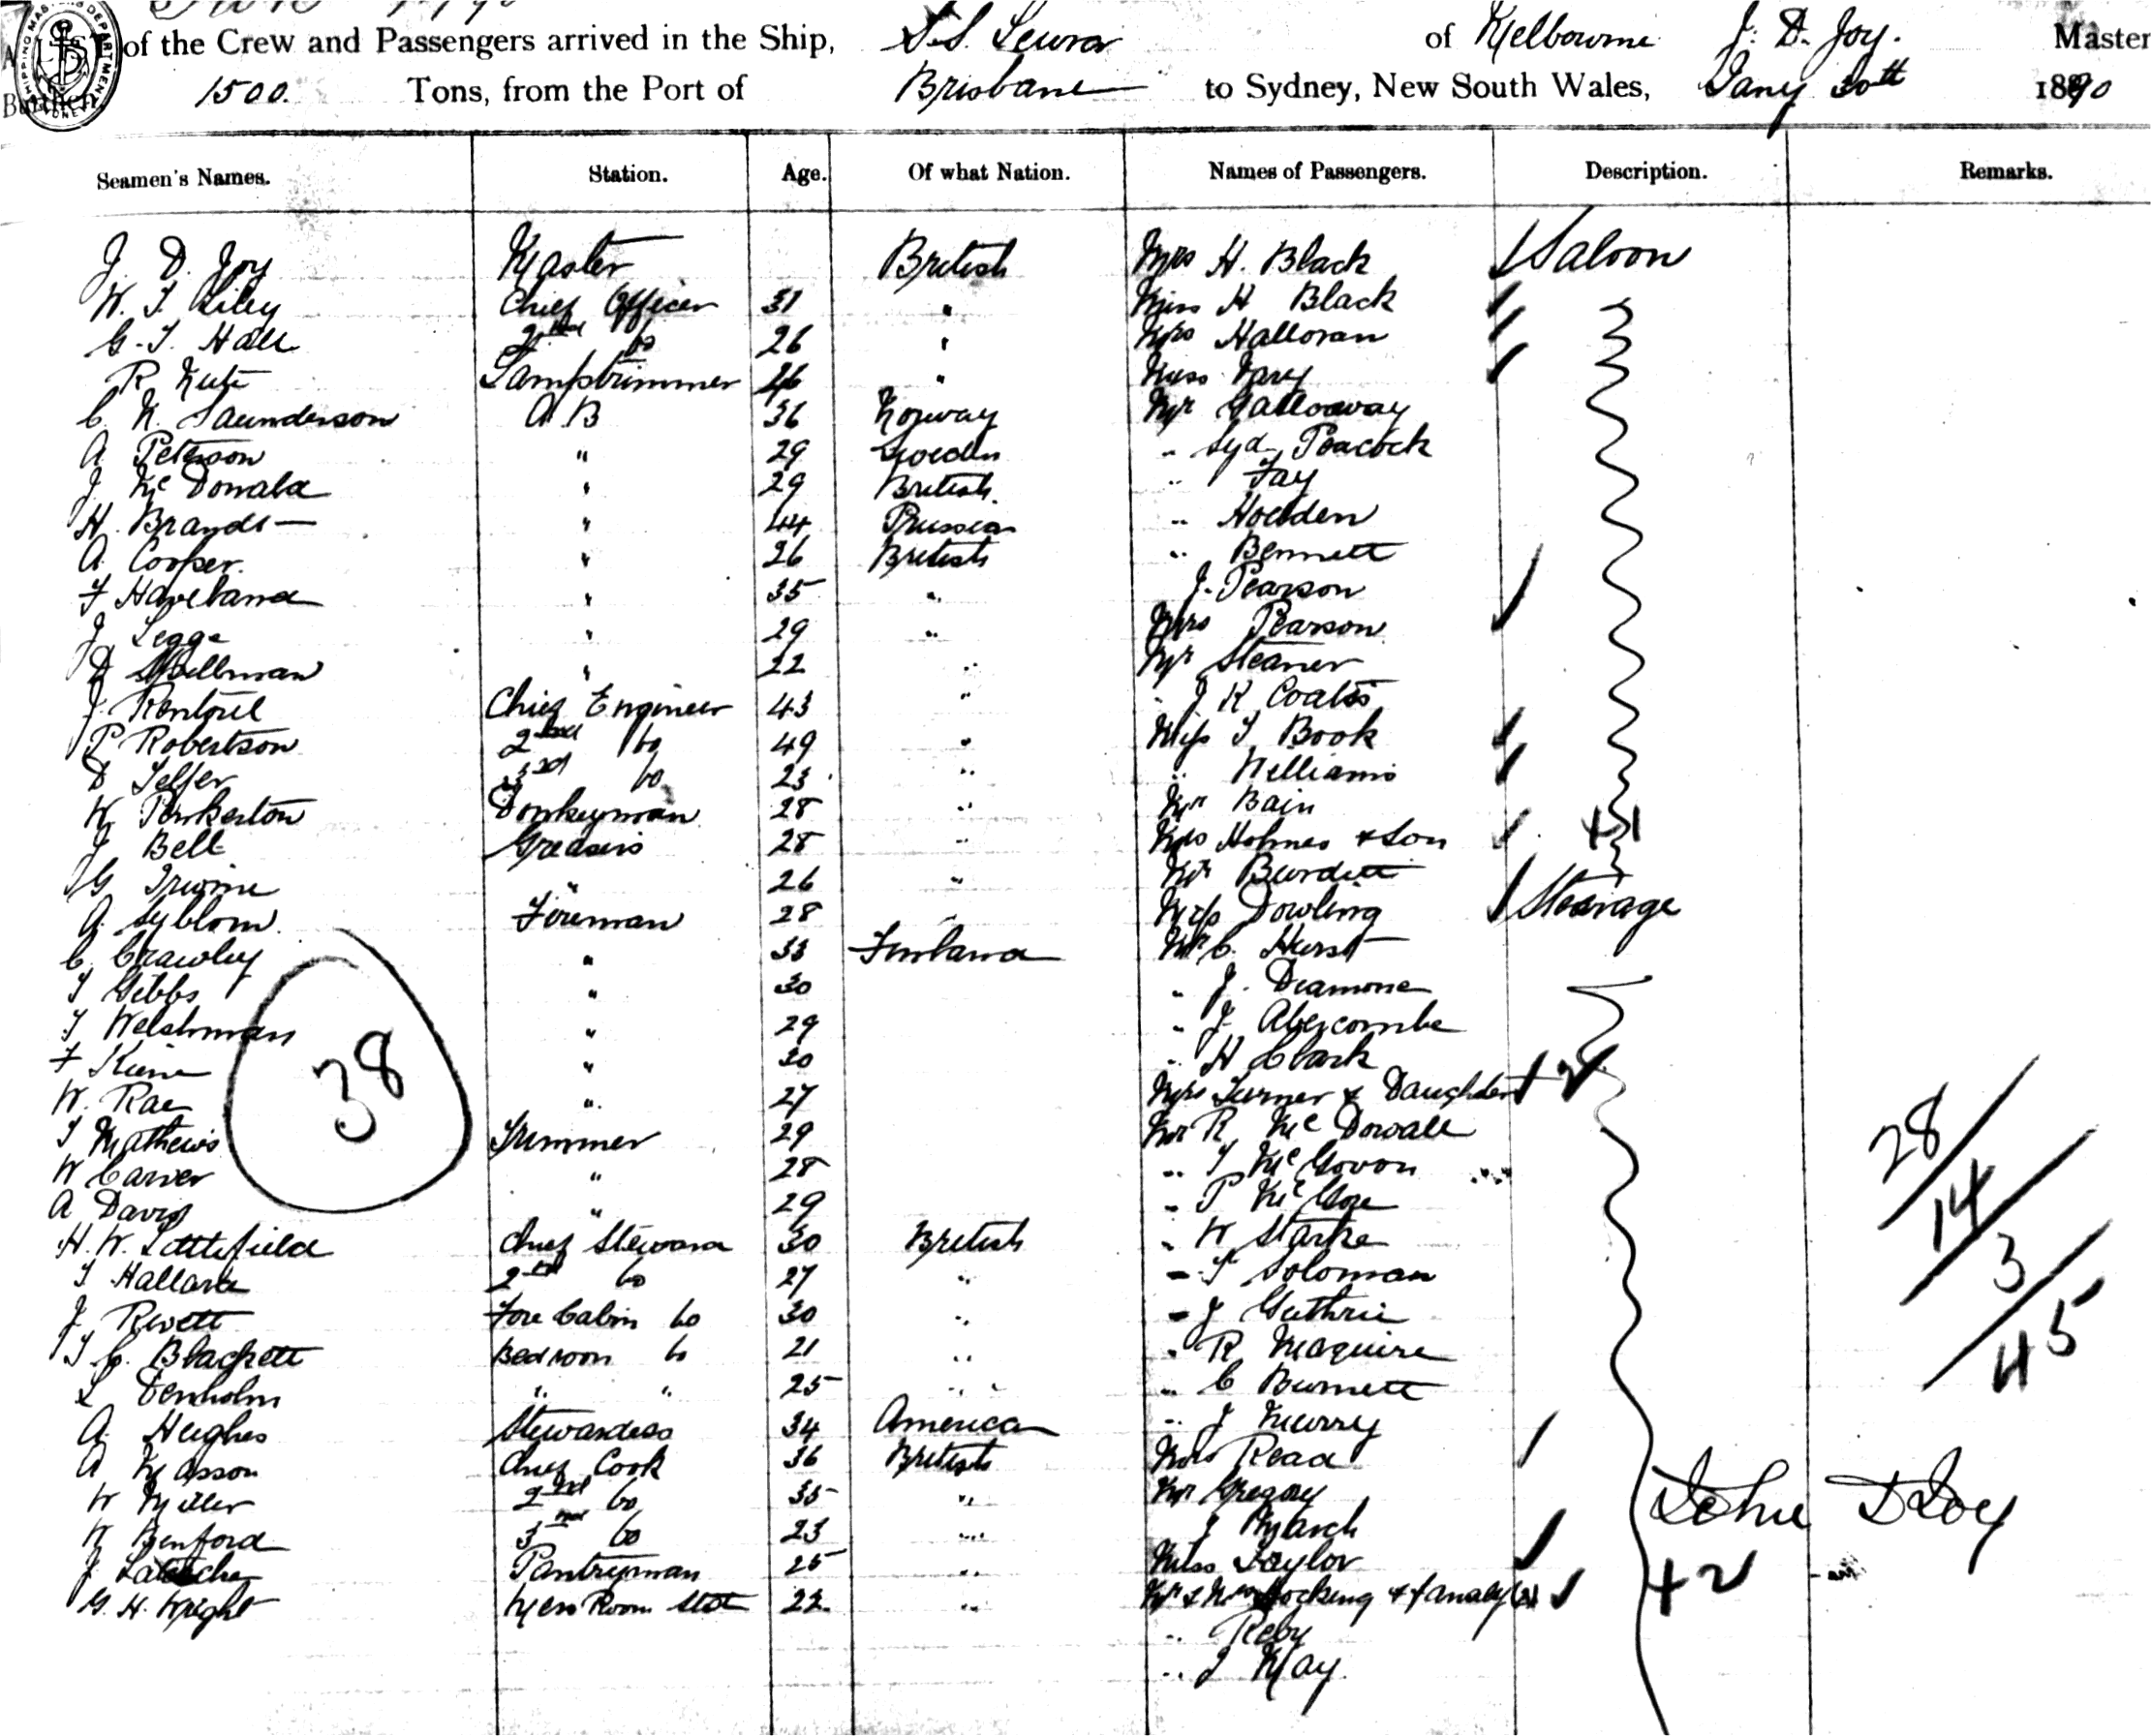 of the Crew and Passengers arrived in the Ship, S.S. of Melbourne J. D. Joy. Master
Burthen, 1500. Tons, from the Port of Brisbane to Sydney, New South Wales, Jany 30th 1890
Seamen's Names. Station. Age. Of what Nation. Names of Passengers. Description. Remarks.
J. D. Joy Master British Mrs H. Black Saloon
W. T. Liley Chief Officer 31 " Miss H Black
G. T. Hall 2nd Do 26 " Mrs Halloran
R Lamptrimmer " Miss
C. N. Saunderson A.B 36 Norway Mr Galloway
A Peterson " 29 Sweden " Syd Peacock
J. McDonald " 29 British. " Fay
H. Brandt " 44 Prussian " Holden
A. Cooper. " 26 British " Bennett
F Haveland " 35 " J. Pearson
J Legge " 29 " Mrs Pearson
D " 22 " Mr Steaner
J. Rentoul Chief Engineer 43 " " J K Coates
P Robertson 2nd Do 49 " Miss T Book
D Telfer 3rd Do 23 " " Williams
W Pinkerton Donkeyman 28 " Mr Bain
J Bell Greasers 28 " Mrs Holmes & Son +1
G Irwine " 26 " Mr Burdett
A. Syblom. Fireman 28 " Miss Dowling Steerage
C Crawley " 33 Finland Mr C. Hurst
T Gibbs " 30 " J. Diamone
T Welshman " 29 " J Abercombe
F " 30 " H Clark
W. Rae " 27 Mrs Turner & Daughter
38
T Mathews Trimmer 29 Mr R McDowall
W Carver " 28 " T McGovon
A Davis " 29 " P
H. W. Littlefield Chief Steward 30 British " W Starke
T Hallard 2nd Do 27 " " T Soloman
J. Rivett Fore Cabin Do 30 " " J Guthrie
T. C. Blackett Bedroom Do 21 " " R Maquire
L Denholm " " 25 " " C Burnett
A. Hughes Stewardess 34 American " J Murry
A Masson Chief Cook 36 British Mrs Read
W Miller 2nd Do 35 " Mr Gregory
W Benford 3rd Do 23 " J
J Pantryman 25 " Miss Taylor
G. H. Wright Mess Room Std 22 " Mr & Mrs Hocking & family (2) +2
" Reby
" J May.
28
14
3
45
John D Joy